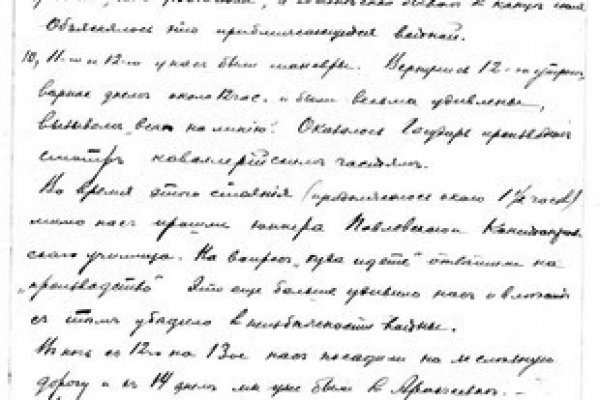 Объяснялось это приближающейся войной.
10, 11-го и 12-го у нас были маневры. Вернулись 12-го утром,
вернее днем около 12 час. и были весьма удивлены,
вызывом "всех на линию". Оказалось Государь производит
смотръ кавалерийским частям.
Во время этого стояния (продолжалось около 1½ часов)
мимо нас прошли юнкера Павловского
училища. На вопрос "куда идете" ответили на
"производство". Это еще больше удивило нас и
с тем убедило в неизбежности войны.
В ночь с 12-го на 13-ое нас посадили на железную
дорогу и в 14 днем мы уже были в